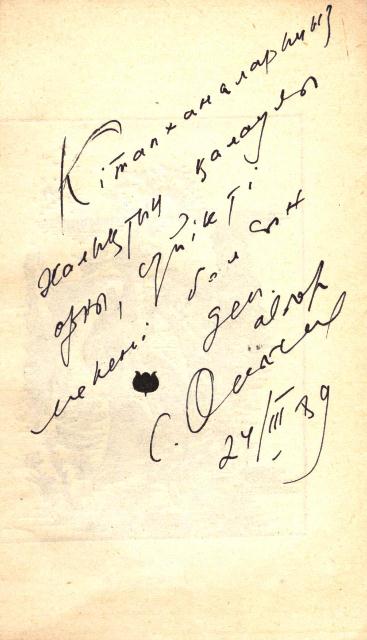 Кітапханаларыңыз
халықтың қалаулы
орны, сүйікті
мекені болсын
деп. автор
С.
24/III 89